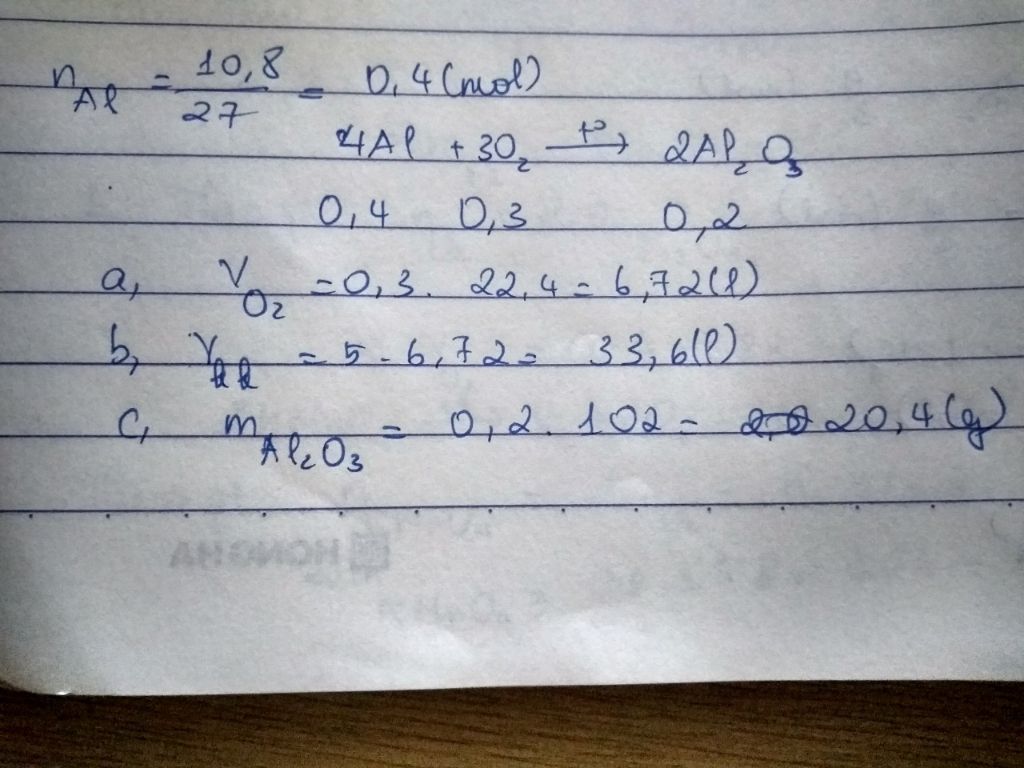 nAl = 10,8/27 = 0,4 (mol)
4Al + 3O2 →(t°) 2Al2O3
0,4 0,3 0,2
a, VO2 = 0,3 . 22,4 = 6,72 (l)
b, Vkk = 5 . 6,72 = 33,6 (l)
c, mAl2O3 = 0,2 . 102 = 20,4 (g)
HONGHA